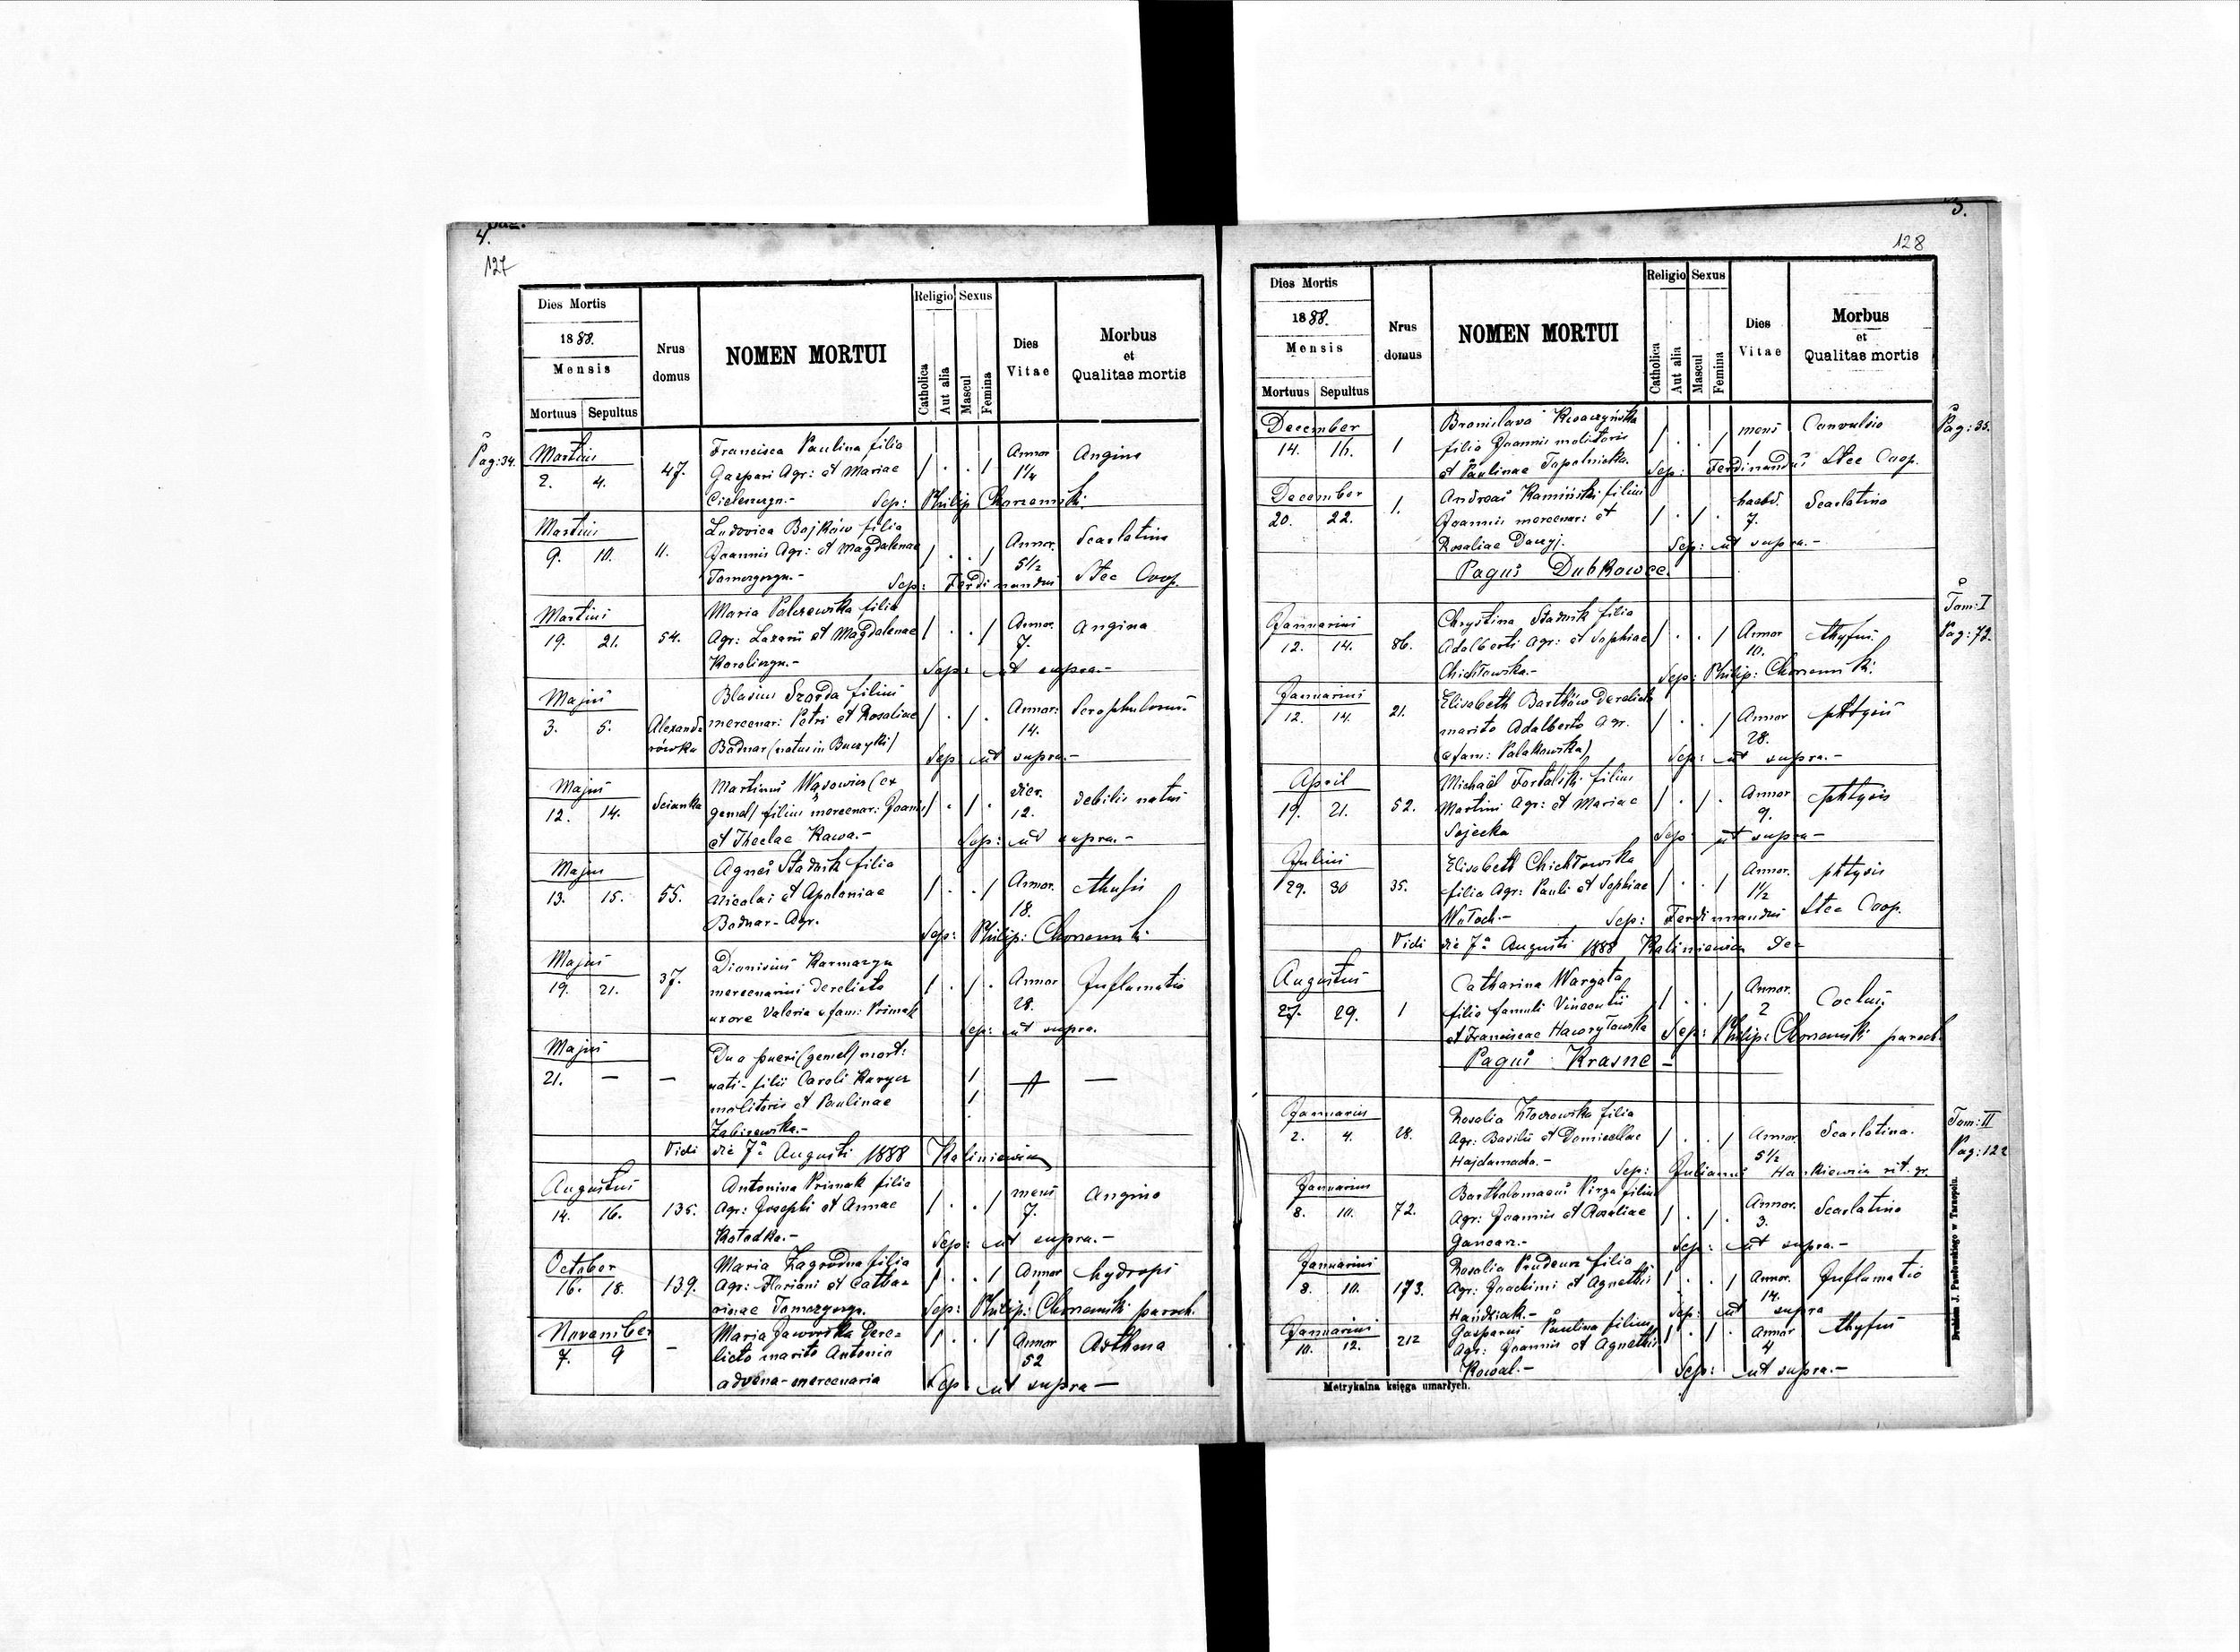 4.
127
Dies Mortis
1888.
Mensis
Mortuus Sepultus
Nrus domus
NOMEN MORTUI
Religio Sexus
Catholica Aut alia Mascul Femina
Dies Vitae
Morbus et Qualitas mortis
Pag: 34.
Martius
Francisca Paulina filia
2. 4. 47. Gaspari Agr: et Mariae / . . / Annor 1¼ Angina
Sep: Philip
Martius
Ludovica Bojków filia
9. 10. 11. Joannis Agr: et Magdalenae / . . / Annor. 5½ Scarlatina
Sep: Ferdinandus Stec Coop.
Martius
Maria Palczewska filia
19. 21. 54. Agr: Lazarii et Magdalenae / . . / Annor. 7. Angina
Sep: ut supra.-
Majus
Blasius filius
3. 5. Alexandrówka mercenar: Petri et Rosaliae / . / . Annor: 14.
Bednar (natus in Buczyki)
Sep ut supra.-
Majus
Martinus Wąsowicz (ex
12. 14. Scianka gemel) filius mercenar: Joannis / . / . dier. 12. debilis natus
et Theclae Kawa.-
Sep: ut supra.-
Majus
Agnes Stadnik filia
13. 15. 55. Nicolai et Apoloniae / . . / Annor. 18.
Bednar - Agr.
Sep: Philip:
Majus
Dionisius Karmazyn
19. 21. 37. mercenarius derelicta / . / . Annor 28. Inflamatio
uxore Valeria e fam: Primak
Sep: ut supra.
Majus
Duo pueri (gemel) mort:
21. — — nati - filii Caroli / —
molitoris et Paulinae /
Vidi die 7ª Augusti 1888 Kaliniewicz
Augustus
Antonina Primak filia
14. 16. 135. Agr: Josephi et Annae / . . / mens 7. Angina
Sep: ut supra.-
October
Maria Zagrodna filia
16. 18. 139. Agr: Floriani et Catha= / . . / Annor 7 hydrops
rinae
Sep: Philip: paroch.
November
Maria Jaworska dere=
7. 9 — licto marito Antonio / . . / Annor 52 Asthma
advena - mercenaria
Sep ut supra —
5.
128
Dies Mortis
1888.
Mensis
Mortuus Sepultus
Nrus domus
NOMEN MORTUI
Religio Sexus
Catholica Aut alia Mascul Femina
Dies Vitae
Morbus et Qualitas mortis
Pag: 35.
December
Bronislava
14. 16. 1 filia Joannis molitoris / . . / mens 1 Convulsio
et Paulinae Topolnicka.
Sep: Ferdinandus Stec Coop.
December
Andreas Kamiński filius
20. 22. 1. Joannis mercenar: et / . / . hebd. 7. Scarlatina
Rosaliae
Sep: ut supra.-
Pagus Dubkowce.
Tom: I
Pag: 72.
Januarius
Chrystina Stadnik filia
12. 14. 86. Adalberti Agr: et Sophiae / . . / Annor 10. thyfus
Chichłowska.-
Sep: Philip:
Januarius
Elisabeth Bartków derelicto
12. 14. 21. marito Adalberto Agr. / . . / Annor 28. phtysis
(e fam: Palakowska)
Sep: ut supra.-
April
Michaël Fortalski filius
19. 21. 52. Martini Agr: et Mariae / . / . Annor 9. phtysis
Sojecka
Sep: ut supra —
Julius
Elisabeth Chichłowska
29. 30 35. filia Agr: Pauli et Sophiae / . . / Annor. 1½ phtysis
Wołoch.-
Sep: Ferdinandus Stec Coop.
Vidi die 7ª Augusti 1888 Kaliniewicz Dec
Augustus
Catharina Wargata
27. 29. 1 filia famuli Vincentii / . . / Annor. 2
et Franciscae Haworyłowska
Sep: Philip: paroch
Pagus Krasne —
Tom: II
Pag: 122
Januarius
Rosalia filia
2. 4. 28. Agr: Basilii et Domicellae / . . / Annor. 5½ Scarlatina.
Hajdamacha.-
Sep: Julianus Hankiewicz rit. gr.
Januarius
Bartholomaeus Pirga filius
8. 10. 72. Agr: Joannis et Rosaliae / . / . Annor. 3. Scarlatina
Gancarz.-
Sep: ut supra.-
Januarius
Rosalia Prudeus filia
8. 10. 173. Agr: Joachimi et Agnethis / . . / Annor. 14. Inflamatio
Hańdziak.-
Sep: ut supra
Januarius
Gasparus Paulina filius
10. 12. 212 Agr: Joannis et Agnethis / . / . Annor 4 thyfus
Kowal.-
Sep: ut supra.-
Metrykalna księga umarłych.
Drukiem J. Pawłowskiego w Tarnopolu.